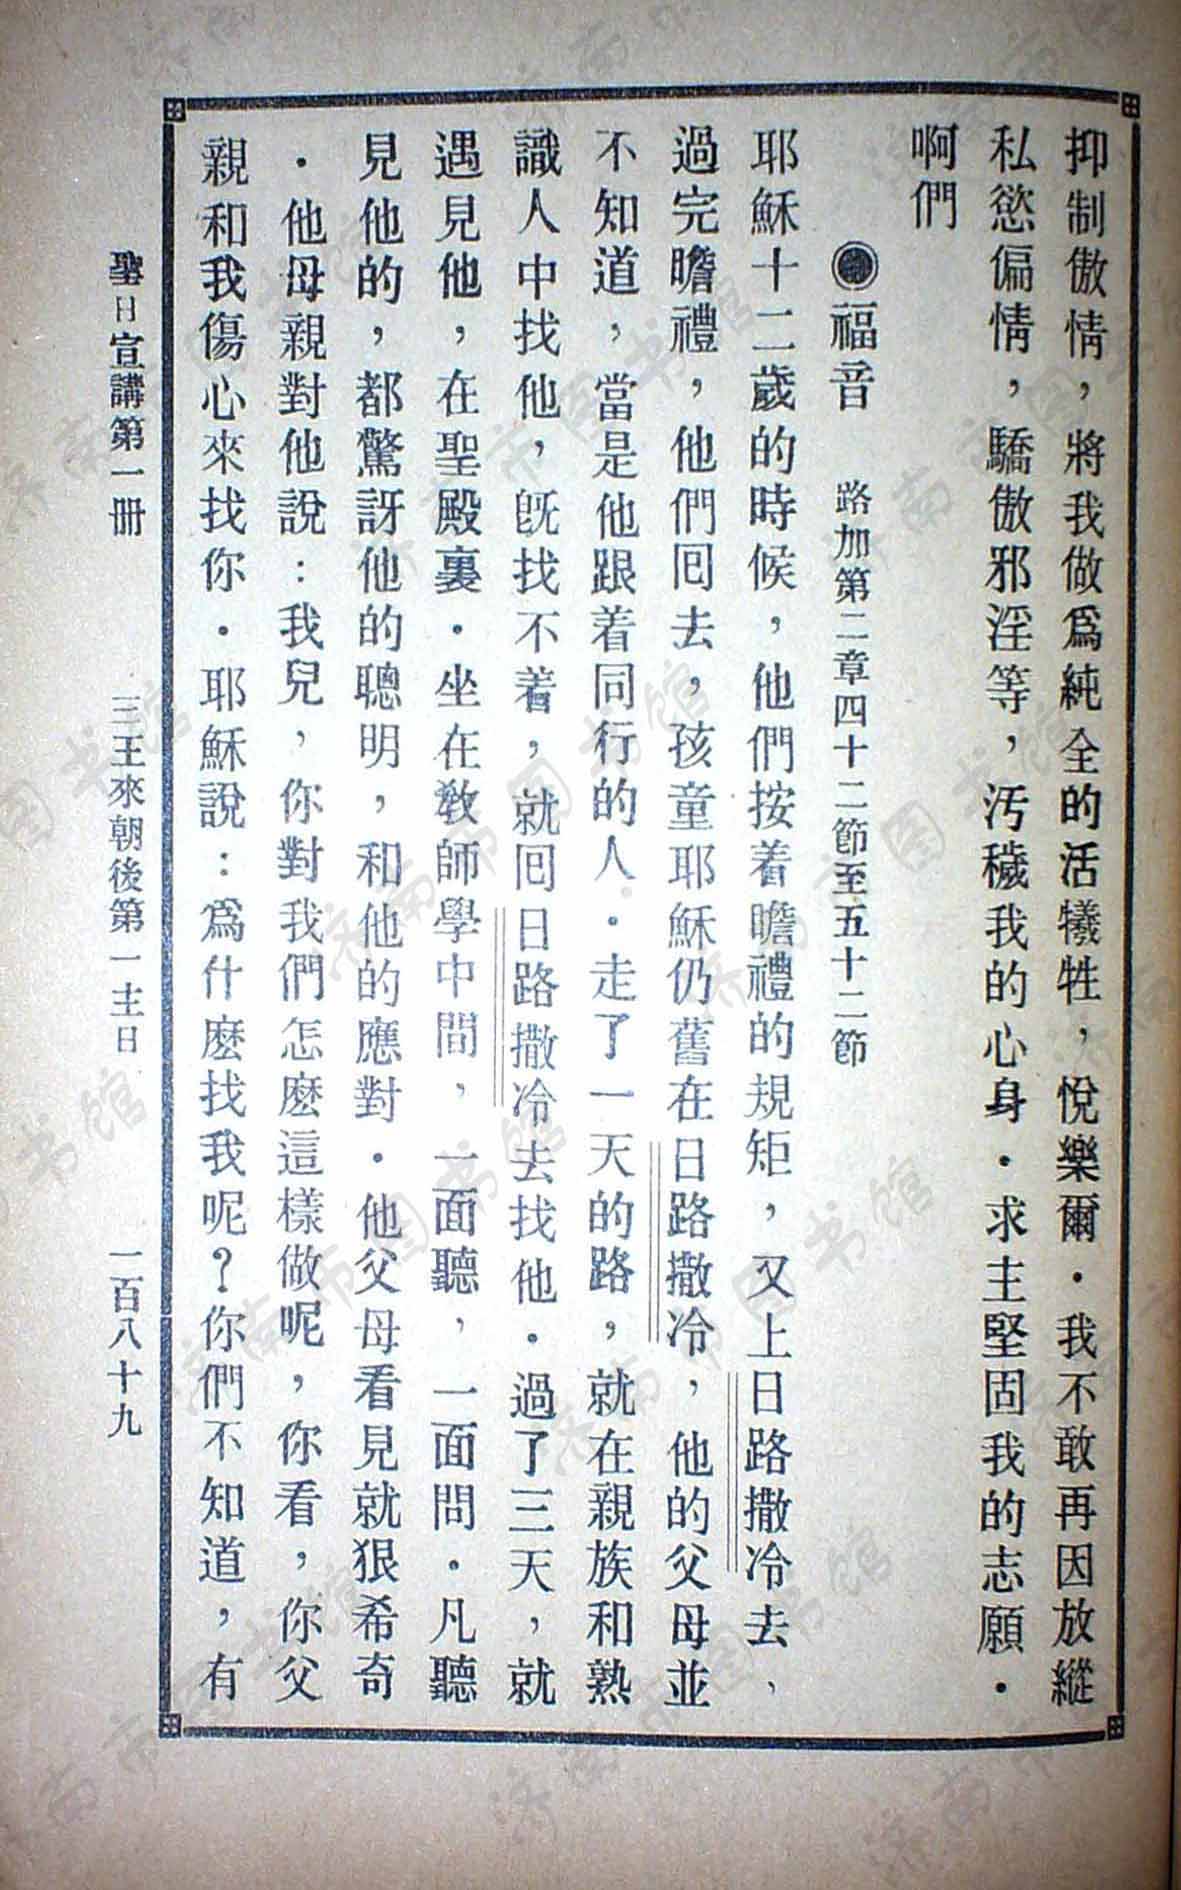 抑制傲情，將我做爲純全的活犧牲，悅樂爾．我不敢再因放縱
私慾偏情，驕傲邪淫等，汚穢我的心身．求主堅固我的志願．
啊們
福音　路加第二章四十二節至五十二節
耶穌十二歲的時候，他們按着瞻禮的規矩，又上日路撒冷去，
過完瞻禮，他們囘去，孩童耶穌仍舊在日路撒冷，他的父母並
不知道，當是他跟着同行的人．走了一天的路，就在親族和熟
識人中找他，旣找不着，就囘日路撒冷去找他．過了三天，就
遇見他，在聖殿裏．坐在敎師學中間，一面聽，一面問．凡聽
見他的，都驚訝他的聰明，和他的應對．他父母看見就狠希奇
．他母親對他說：我兒，你對我們怎麽這樣做呢，你看，你父
親和我傷心來找你．耶穌說：爲什麽找我呢？你們不知道，有
聖日宣講第一册　三王來朝後第一主日　一百八十九
济南市图书馆